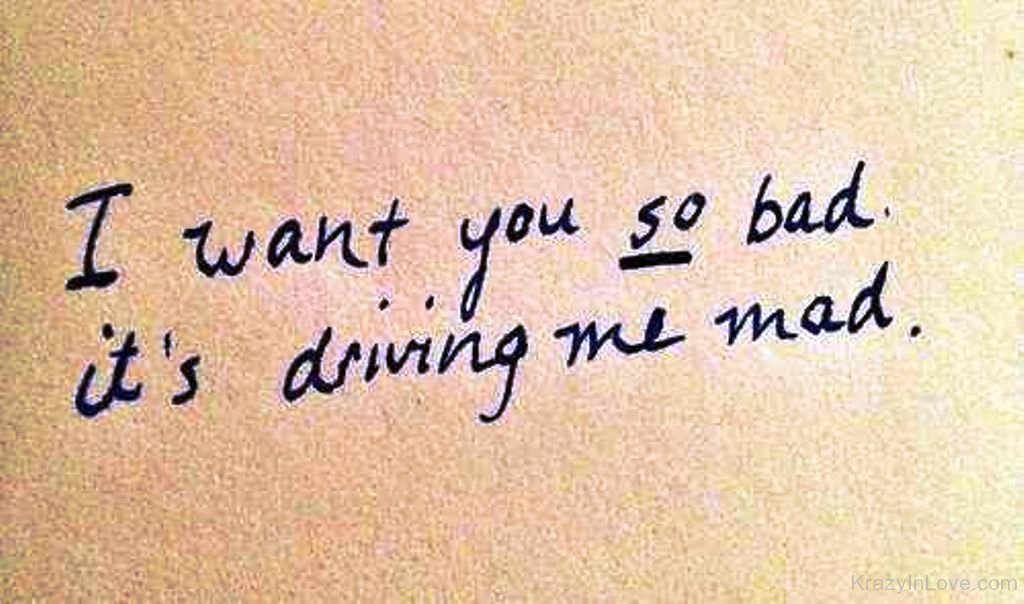 I want you so bad.
it's driving me mad.
KrazyInLove.com